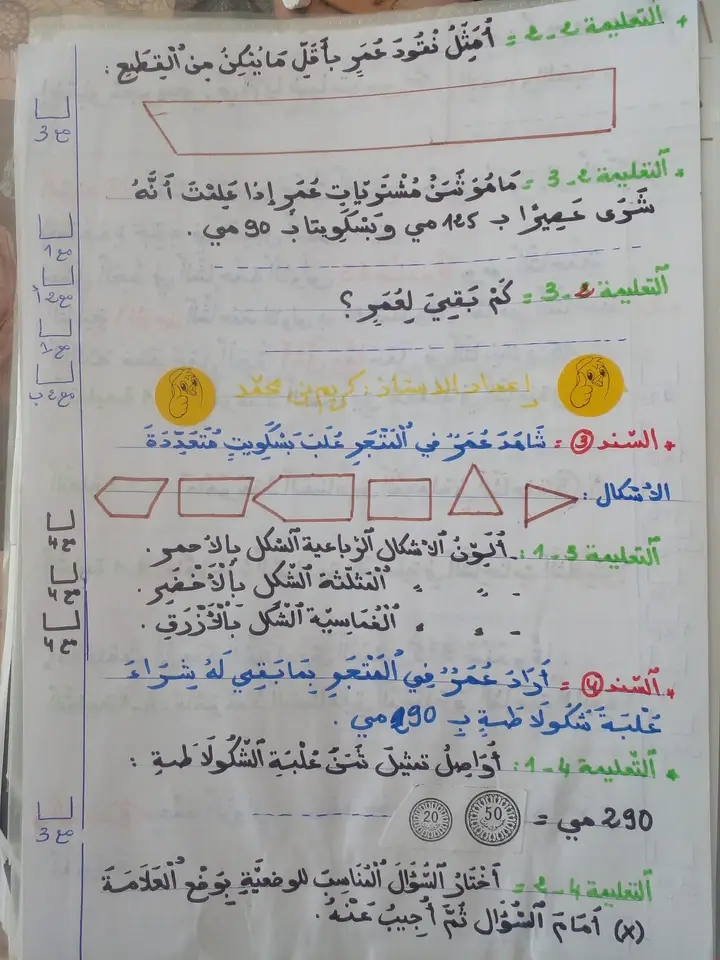 التعليمة 2-2 = أُمَثِّلُ نُقُودَ عُمَرٍ بِأَقَلِّ مَا يُمْكِنُ مِنَ الْقِطَعِ :
مع 3
التعليمة 2-3 = مَا هُوَ ثَمَنُ مُشْتَرَيَاتِ عُمَرٍ إِذَا عَلِمْتَ أَنَّهُ
شَرَى عَصِيرًا بِـ 125 مي وَبَسْكَوِيتًا بِـ 90 مي .
مع 1
مع 2 أ
التعليمة 2-3 = كَمْ بَقِيَ لِعُمَرٍ ؟
مع 1
مع 2 ب
إعداد الاستاذ : كريم بن محمّد
السّند 3 = شَاهَدَ عُمَرُ فِي الْمَتْجَرِ عُلَبَ بَسْكَوِيتٍ مُتَعَدِّدَةَ
الأشكال :
التعليمة 3-1 : - أُلَوِّنُ الأشكال الرّباعية الشّكل بالأحمر .
مع 4
- " " المثلّثة الشّكل بالأخضر .
مع 4
- " " الخماسيّة الشّكل بالأزرق .
مع 4
السّند 4 = أَرَادَ عُمَرُ فِي الْمَتْجَرِ بِمَا بَقِيَ لَهُ شِرَاءَ
عُلْبَةَ شُكُولَاطَةٍ بِـ 290 مي .
التّعليمة 4-1 : أُوَاصِلُ تمثيلَ ثَمَنَ عُلْبَةِ الشُّكُولَاطَةِ :
290 مي =
50
20
مع 3
التعليمة 4-2 = أَخْتَارُ السُّؤَالَ الْمُنَاسِبَ لِلوضعيَّةِ بِوَضْعِ الْعَلَامَةَ
(x) أَمَامَ السُّؤَال ثُمَّ أُجِيبُ عَنْهُ .